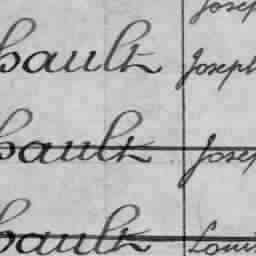 Joseph
bault Joseph
bault Joseph
bault Louis